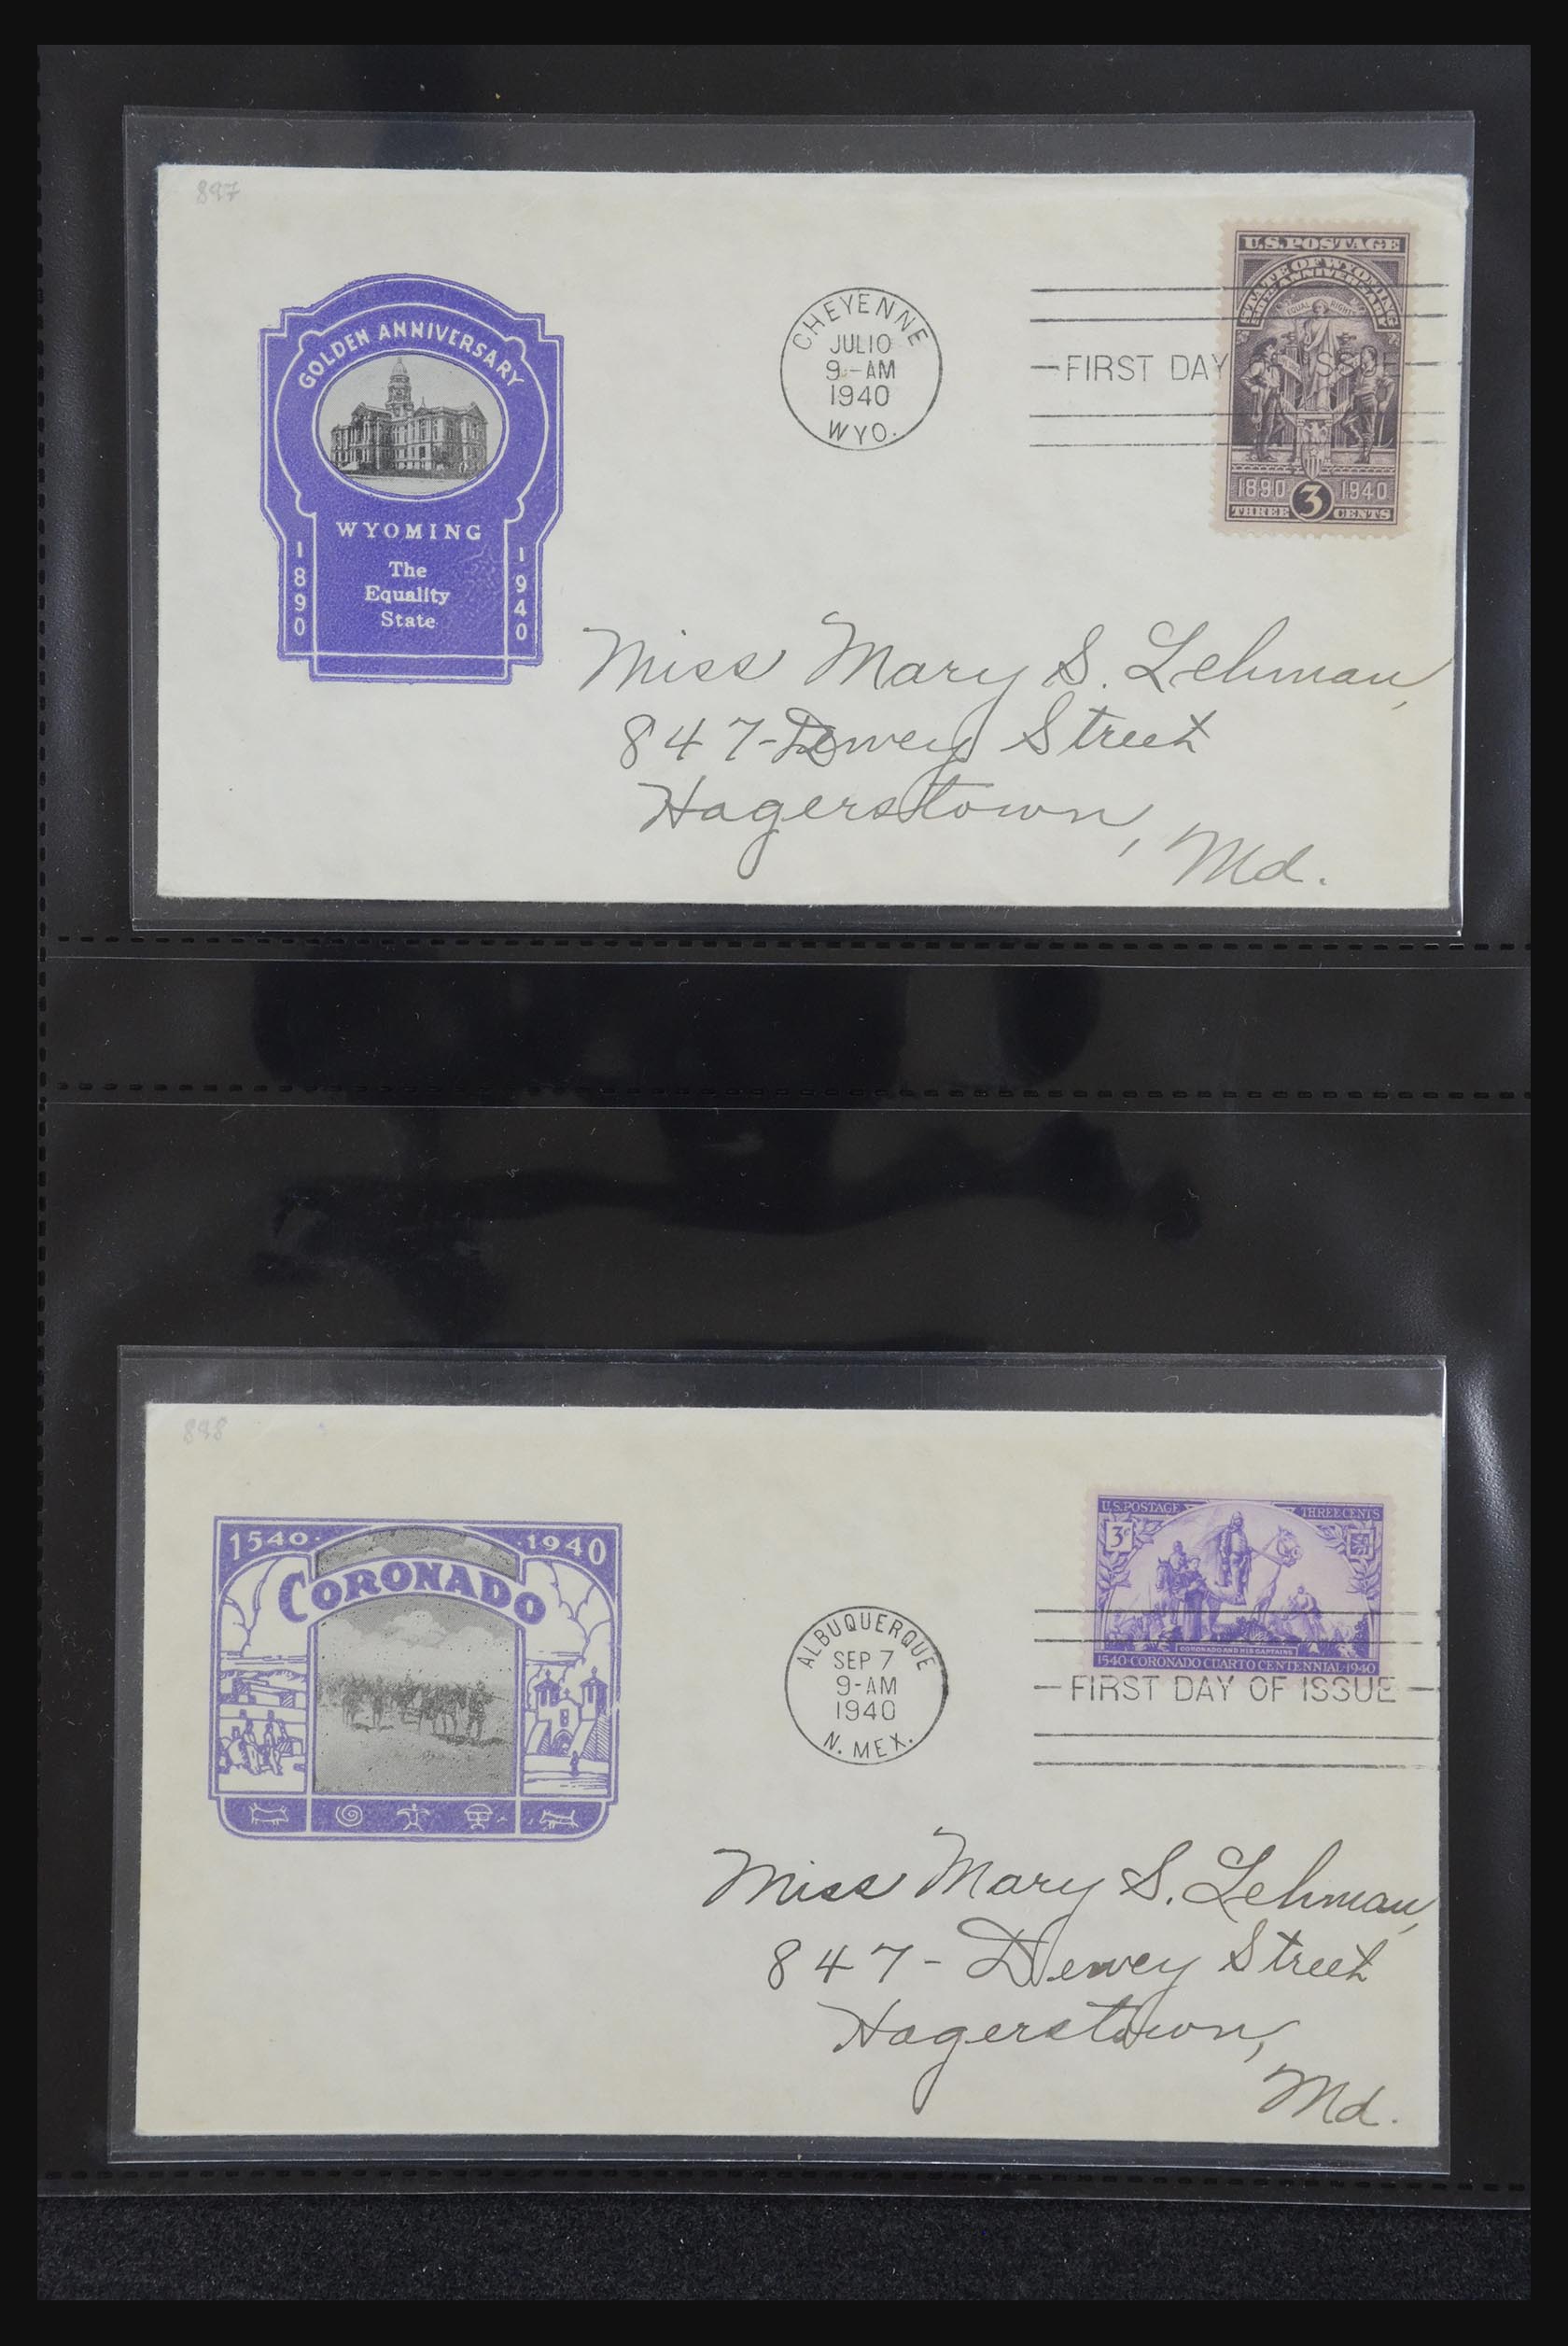 897
GOLDEN ANNIVERSARY
WYOMING
The
Equality
State
1890
1940
CHEYENNE
JUL 10
9-AM
1940
WYO.
FIRST DAY ISSUE
U.S. POSTAGE
STATE OF WYOMING
50TH ANNIVERSARY
EQUAL RIGHTS
1890 3 1940
THREE CENTS
Miss Mary S. Lehman,
847-Dewey Street
Hagerstown,
Md.
898
1540· ·1940
CORONADO
ALBUQUERQUE
SEP 7
9-AM
1940
N. MEX.
U.S. POSTAGE THREE CENTS
3c
CORONADO AND HIS CAPTAINS
1540·CORONADO CUARTO CENTENNIAL·1940
FIRST DAY OF ISSUE
Miss Mary S. Lehman,
847- Dewey Street
Hagerstown,
Md.